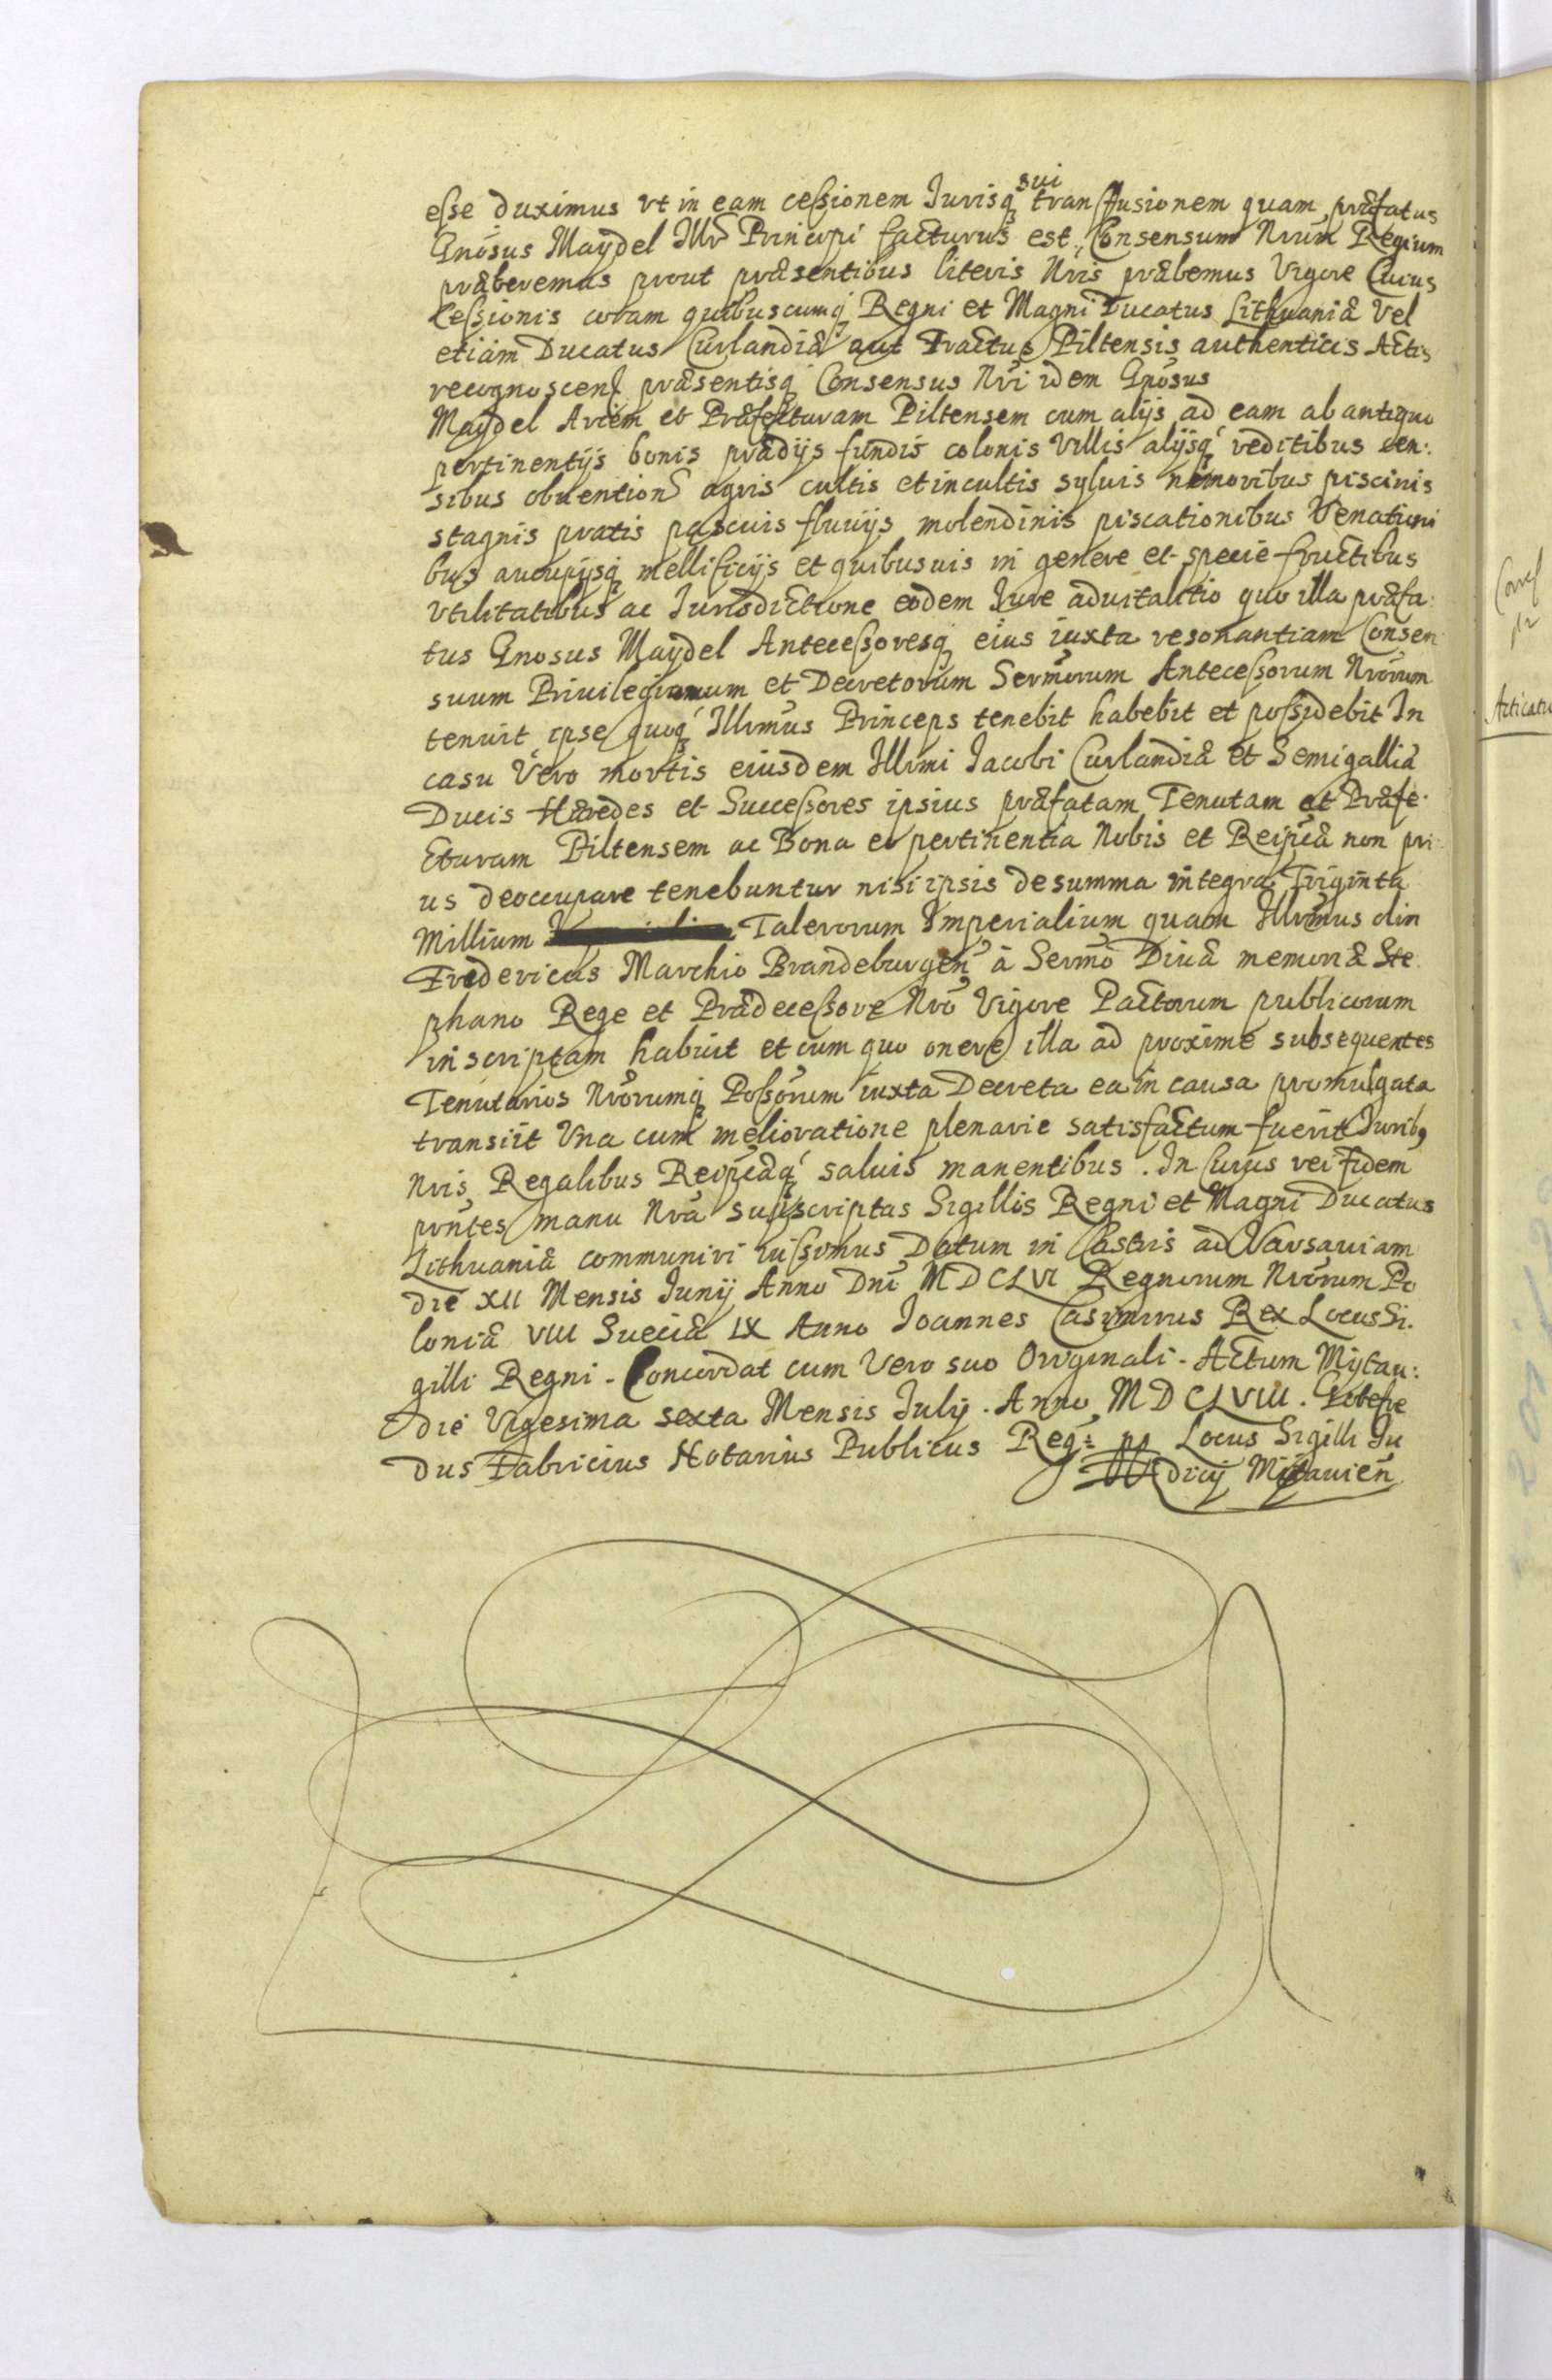 esse duximus vt in eam cessionem Jurisq sui transfusionem quam præfatus
Gnosus Maydel Illr Principi facturus est, Consensum Nrum Regium
præberemus prout præsentibus literis Nris præbemus Vigore Cuius
Cessionis coram quibuscumq Regni et Magni Ducatus Lithuaniæ Vel
etiam Ducatus Curlandiæ aut Tractus Piltensis authenticis Actis
recognoscen præsentisq Consensus Nri idem Gnosus
Maydel Arcem et Præfecturam Piltensem cum alijs ad eam ab antiquo
pertinentijs bonis prædijs fundis colonis Villis alijsq reditibus cen:
sibus obuention agris cultis et incultis syluis nemoribus piscinis
stagnis pratis pascuis fluuijs molendinis piscationibus Venationi
bus aucupijsq mellificijs et quibusuis in genere et specie fructibus
Vtilitatibus ac Jurisdictione eodem Jure aduitalitio quo illa præfa:
tus Gnosus Maydel Antecessoresq eius iuxta resonantiam Consen
suum Priuilegiorum et Decretorum Sermorum Antecessorum Nrorum
tenuit ipse quoq Illrmus Princeps tenebit habebit et possidebit In
casu Vero mortis eiusdem Illrmi Jacobi Curlandiæ et Semigalliæ
Ducis Hæredes et Successores ipsius præfatam Tenutam et Præfe:
cturam Piltensem ac Bona eo pertinentia Nobis et Reipcæ non pri
us deoccupare tenebuntur nisi ipsis de summa integra Triginta
Millium Talerorum Imperialium quam Illrmus olin
Fredericus Marchio Brandeburgen à Sermo Diuæ memoriæ Ste
phano Rege et Prædecessore Nro Vigore Pactorum publicorum
inscriptam habuit et cum quo onere illa ad proxime subsequentes
Tenutarios Nrorumq Possorum iuxta Decreta ea in causa promulgata
transiit Vna cum melioratione plenarie satisfactum fuerit Jurib9
Nris Regalibus Reipcæq saluis manentibus. In Cuius rei fidem
prntes manu Nra subscriptas Sigillis Regni et Magni Ducatus
Lithuaniæ communiri iussimus Datum in Castris ad Varsauiam
die XII Mensis Junij Anno Dni MDCLVI Regnorum Nrorum Po
loniæ VIII Sueciæ IX Anno Joannes Casimirus Rex Locus Si.
gilli Regni - Concordat cum Vero suo Originali - Actum Mytau:
die Vigesima sexta Mensis Julij. Anno MDCLVIII.
dus Fabricius Notarius Publicus Reg: pp Locus Sigilli Ju
dicij Mitauien
Acticatu